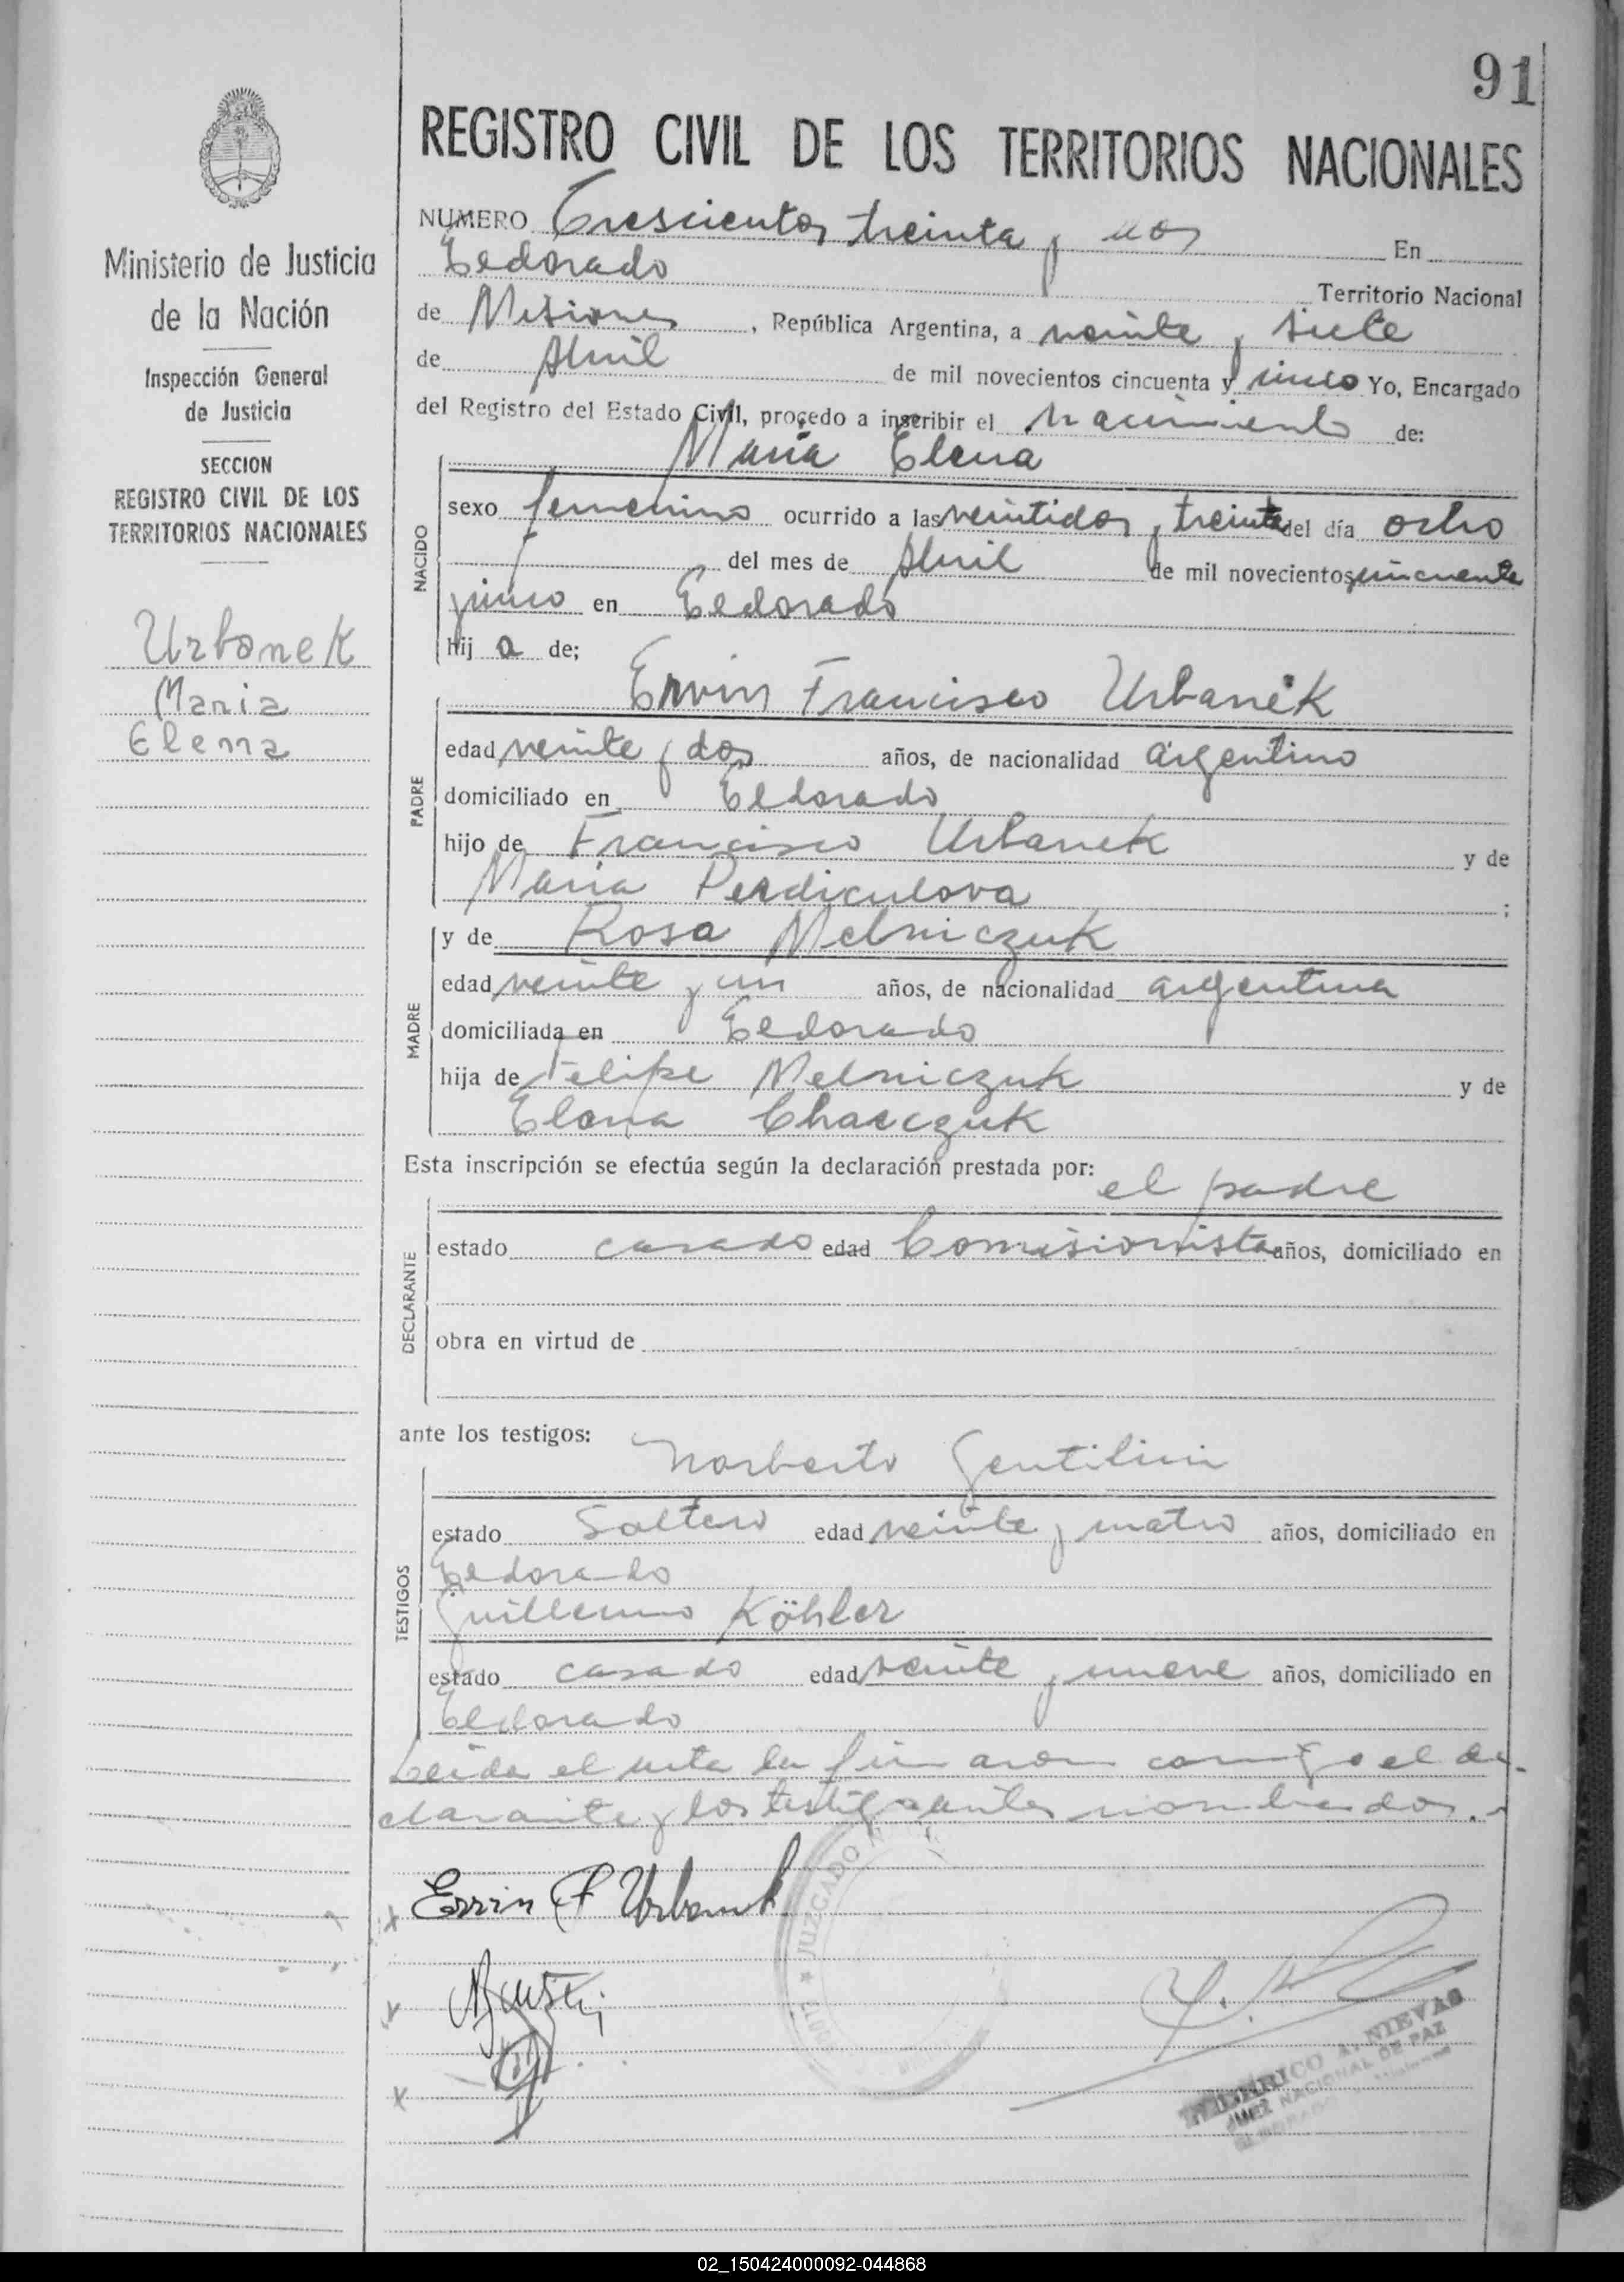 91
REGISTRO CIVIL DE LOS TERRITORIOS NACIONALES
Ministerio de Justicia
de la Nación
Inspección General
de Justicia
SECCION
REGISTRO CIVIL DE LOS
TERRITORIOS NACIONALES
Urbanek
Maria
Elena
NUMERO Trescientos treinta y dos En
Eldorado Territorio Nacional
de Misiones, República Argentina, a veinte y siete
de Abril de mil novecientos cincuenta y cinco Yo, Encargado
del Registro del Estado Civil, procedo a inscribir el nacimiento de:
NACIDO
María Elena
sexo femenino ocurrido a las veintidos y treinta del día ocho
del mes de Abril de mil novecientos cincuenta
y cinco en Eldorado
hij a de;
PADRE
Ervin Francisco Urbanek
edad veinte y dos años, de nacionalidad argentino
domiciliado en Eldorado
hijo de Francisco Urbanek y de
María Perdiculova ;
MADRE
y de Rosa Melniczuk
edad veinte y un años, de nacionalidad argentina
domiciliada en Eldorado
hija de Felipe Melniczuk y de
Elena
Esta inscripción se efectúa según la declaración prestada por:
el padre
DECLARANTE
estado casado edad Comisionista años, domiciliado en
obra en virtud de
ante los testigos:
TESTIGOS
Norberto Gentilini
estado Soltero edad veinte y cuatro años, domiciliado en
Eldorado
Guillermo Köhler
estado casado edad veinte y nueve años, domiciliado en
Eldorado
Leida el acta la firmaron conmigo el de-
clarante y los testigos antes nombrados.-
x Ervin F Urbanek
x
x
★ JUZGADO
FEDERICO A. NIEVAS
JUEZ NACIONAL DE PAZ
02_150424000092-044868